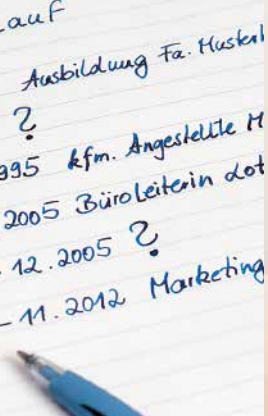 lauf
Ausbildung Fa. Musterl
?
995 kfm. Angestellte M
2005 Büroleiterin dot
. 12.2005 ?
- 11.2012 Marketing